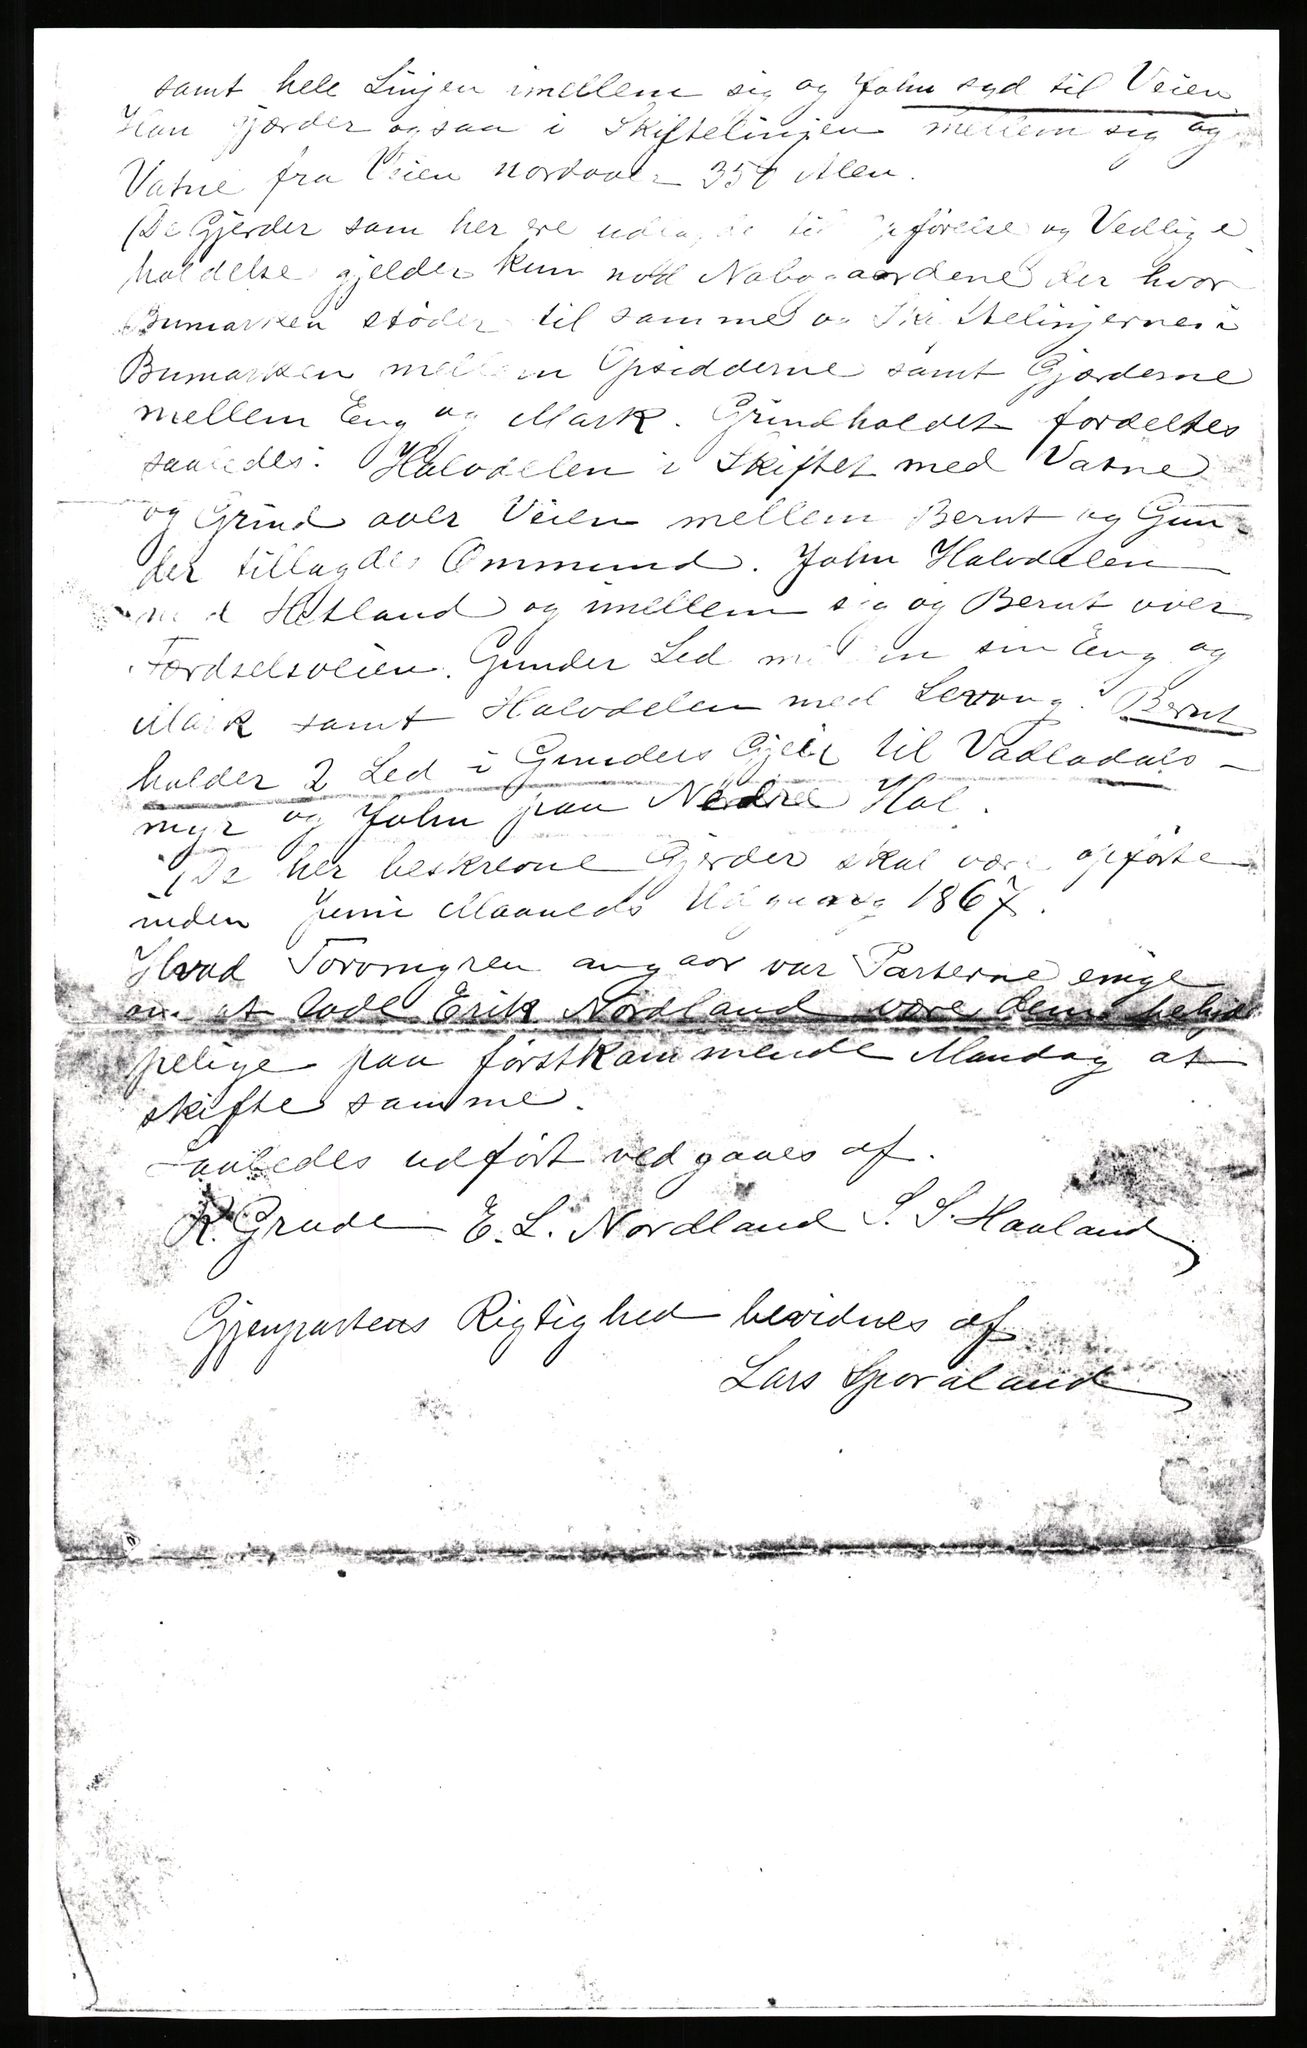 samt hele Linjen imellem sig og John syd til Veien.
Han gjærder ogsaa i Skiftelinjen mellem sig og
Vatne fra Veien nordover 350 Alen.
(De Gjerder som her ere udlagde til Opførelse og Vedlige
holdelse gjelder kun mod Nabogaardene der hvor
Bumarken støder til samme og Skiftelinjerne i
Bumarken mellem Opsidderne samt Gjærderne
mellem Eng og Mark. Grindholdet fordeltes
saaledes: Halvdelen i Skiftet med Vatne
og Grind over Veien mellem Bernt og Gun-
der tillagdes Ommund. John Halvdelen
med Hetland og imellem sig og Bernt over
Færdselsveien. Gunder Led mellem sin Eng og
Mark samt Halvdelen med Levang. Bernt
holder 2 Led i Gunders Gjeil til Vadladals-
myr og John paa Nedre Hal.
(De her beskrevne Gjerder skal være opførte
inden Juni Maaneds Udgang 1867.
Hvad Torvmyren angaar var Parterne enige
om at lade Erik Nordland være dem behjel
pelige paa førstkommende Mandag at
skifte samme.
Saaledes udført vedgaaes af.
R. Grude E. L. Nordland S. S. Haaland
Gjenpartens Rigtighed bevidnes af
Lars Sporaland